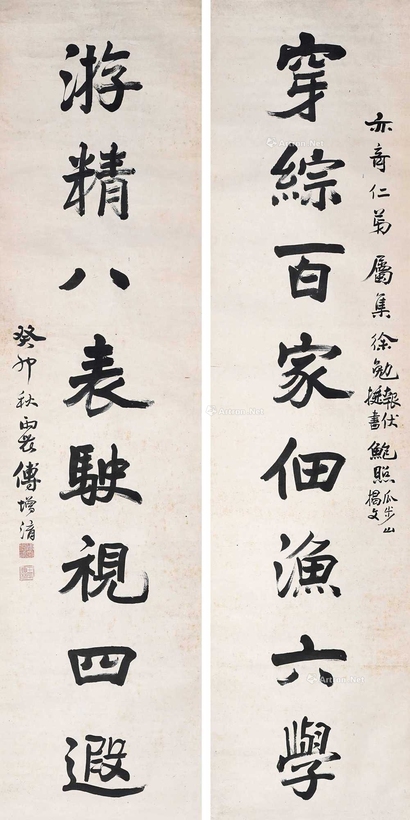 亦奇仁弟屬集徐勉報伏挻書鮑照瓜步山楬文
穿綜百家佃漁六學
游精八表駛視四遐
癸卯秋雨農傅增淯